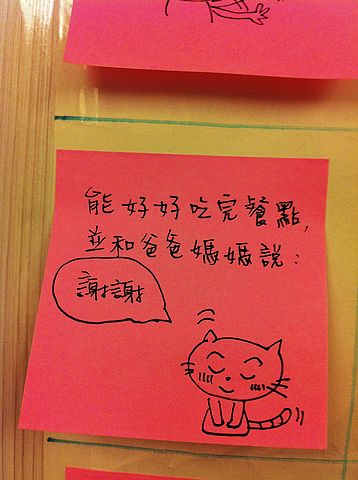 能好好吃完餐點,
並和爸爸媽媽說:
謝謝